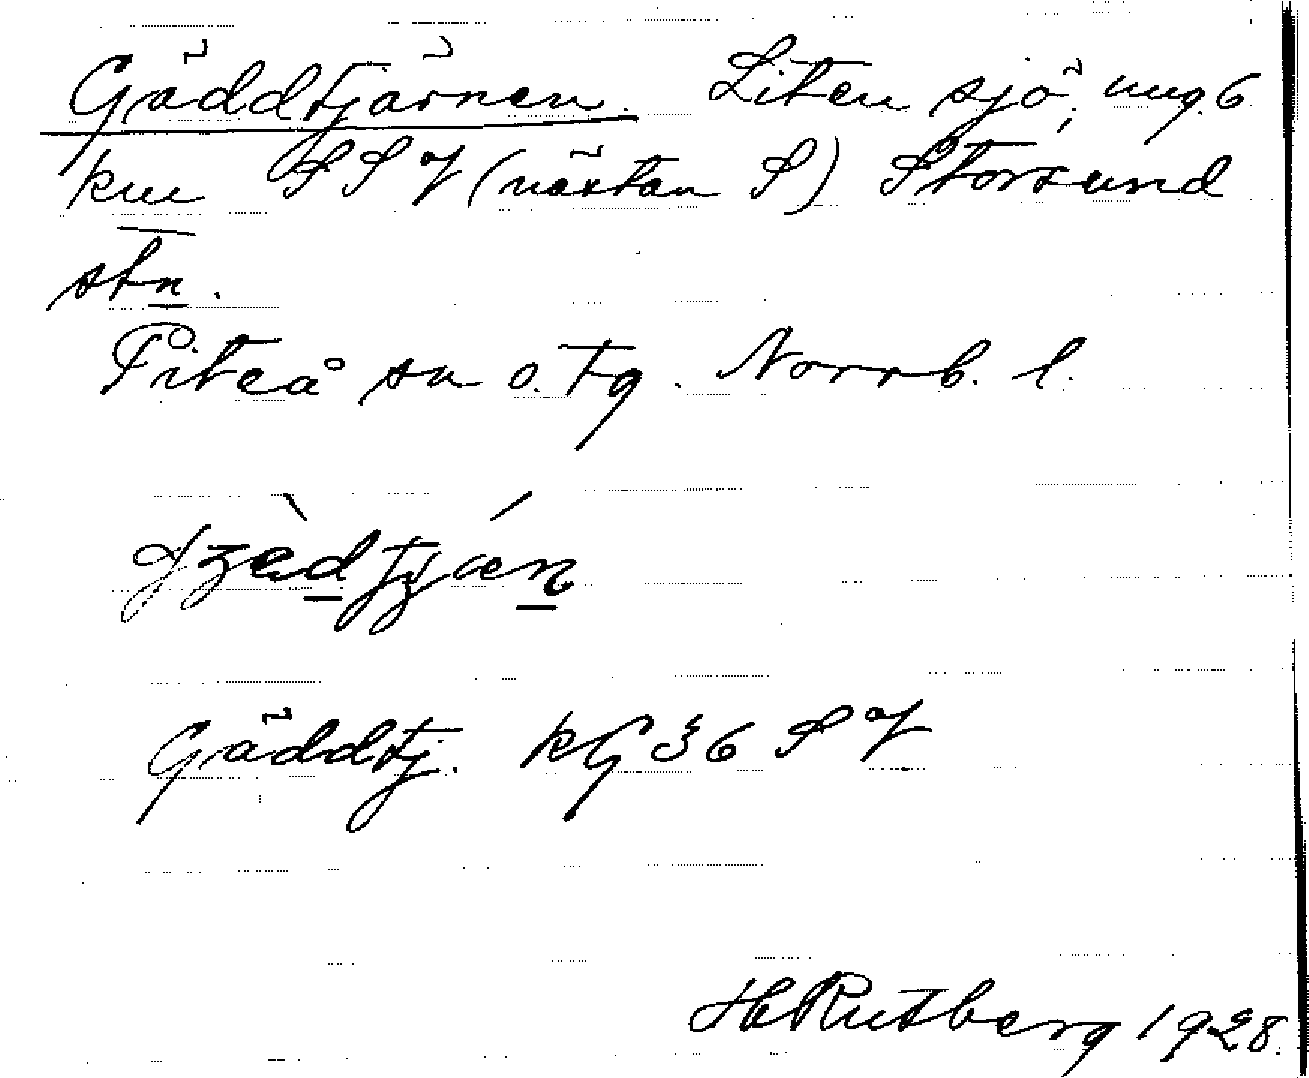 Gäddtjärnen. Liten sjö, ung. 6
km SSV (nästan S) Storsund
stn.
Piteå sn o. tg. Norrb. l.
Gäddtj. kG 36 SV
H Rutberg 1928.